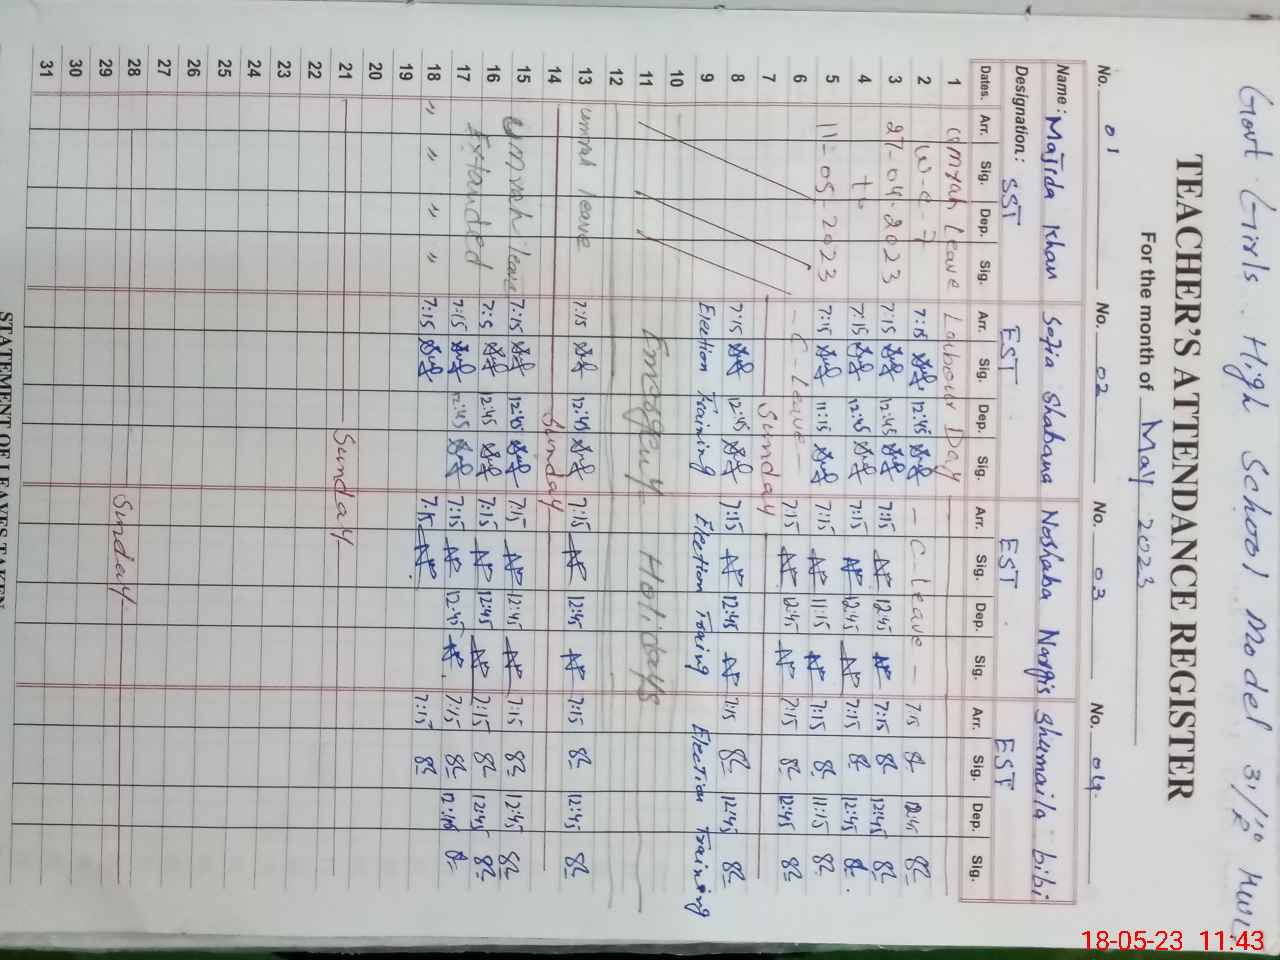 Govt Girls High School Model 3
TEACHER'S ATTENDANCE REGISTER
For the month of May 2023
No. 01 No. 02 No. 03 No. 04
Name: Majida Khan Sofia Shabana Noshaba Nargis Shumaila bibi
Designation: SST EST EST EST
Dates. Arr. Sig. Dep. Sig. Arr. Sig. Dep. Sig. Arr. Sig. Dep. Sig. Arr. Sig. Dep. Sig.
1 Umrah Leave Labour Day
2 w-e-f 7:15 12:45 - C-leave - 7:15 12:45
3 27-04-2023 7:15 12:45 7:15 12:45 7:15 12:45
4 to 7:15 12:45 7:15 12:45 7:15 12:45
5 11-05-2023 7:15 11:15 7:15 11:15 7:15 11:15
6 - C-Leave - 7:15 12:45 7:15 12:45
7 Sunday
8 7:15 12:45 7:15 12:45 7:15 12:45
9 Election Training Election Traing Election Training
10
11 Emergeuy Holidays
12
13 umrah leave 7:15 12:45 7:15 12:45 7:15 12:45
14 Sunday
15 Umrah leave 7:15 12:45 7:15 12:45 7:15 12:45
16 Extanded 7:15 12:45 7:15 12:45 7:15 12:45
17 7:15 12:45 7:15 12:45 7:15
18 " " " " 7:15 7:15 7:15
19
20
21 Sunday
22
23
24
25
26
27
28 Sunday
29
30
31
STATEMENT OF LEAVES TAKEN
18-05-23 11:43